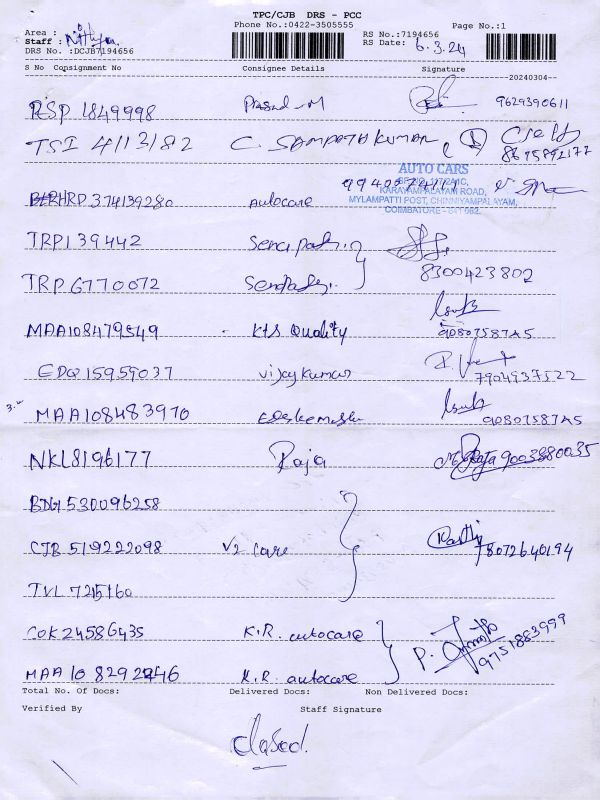 TPC/CJB DRS - PCC
Phone No.:0422-3505555 Page No.:1
Area :
Staff : Nithya
DRS No. :DCJB7194656
RS No.:7194656
RS Date: 6.3.24
S No Consignment No Consignee Details Signature
20240304
RSP 1849998 Prasad-M 9629390611
TSI 4113182 C. SAMPATHKUMAR
8695892177
AUTO CARS
KARAYAMPALAYAM ROAD,
MYLAMPATTI POST, CHINNIYAMPALAYAM,
COIMBATORE - 641 062.
HRP 374139280 Autocare
TRP139442
TRP 6770072 8300423802
MAA108479549 K+S Quality 9080758785
EDQ15959037 Vijaykumar 7904937522
MAA108483970 9080758785
NKL8196177 Raja Raja 9003880035
BNG530096258
CJB 519222098 V2 care 8072640194
TVL 7215160
COK24586435 K.R. autocare 9751883999
MAA 10 829 K.R. autocare
Total No. Of Docs: Delivered Docs: Non Delivered Docs:
Verified By Staff Signature
closed.